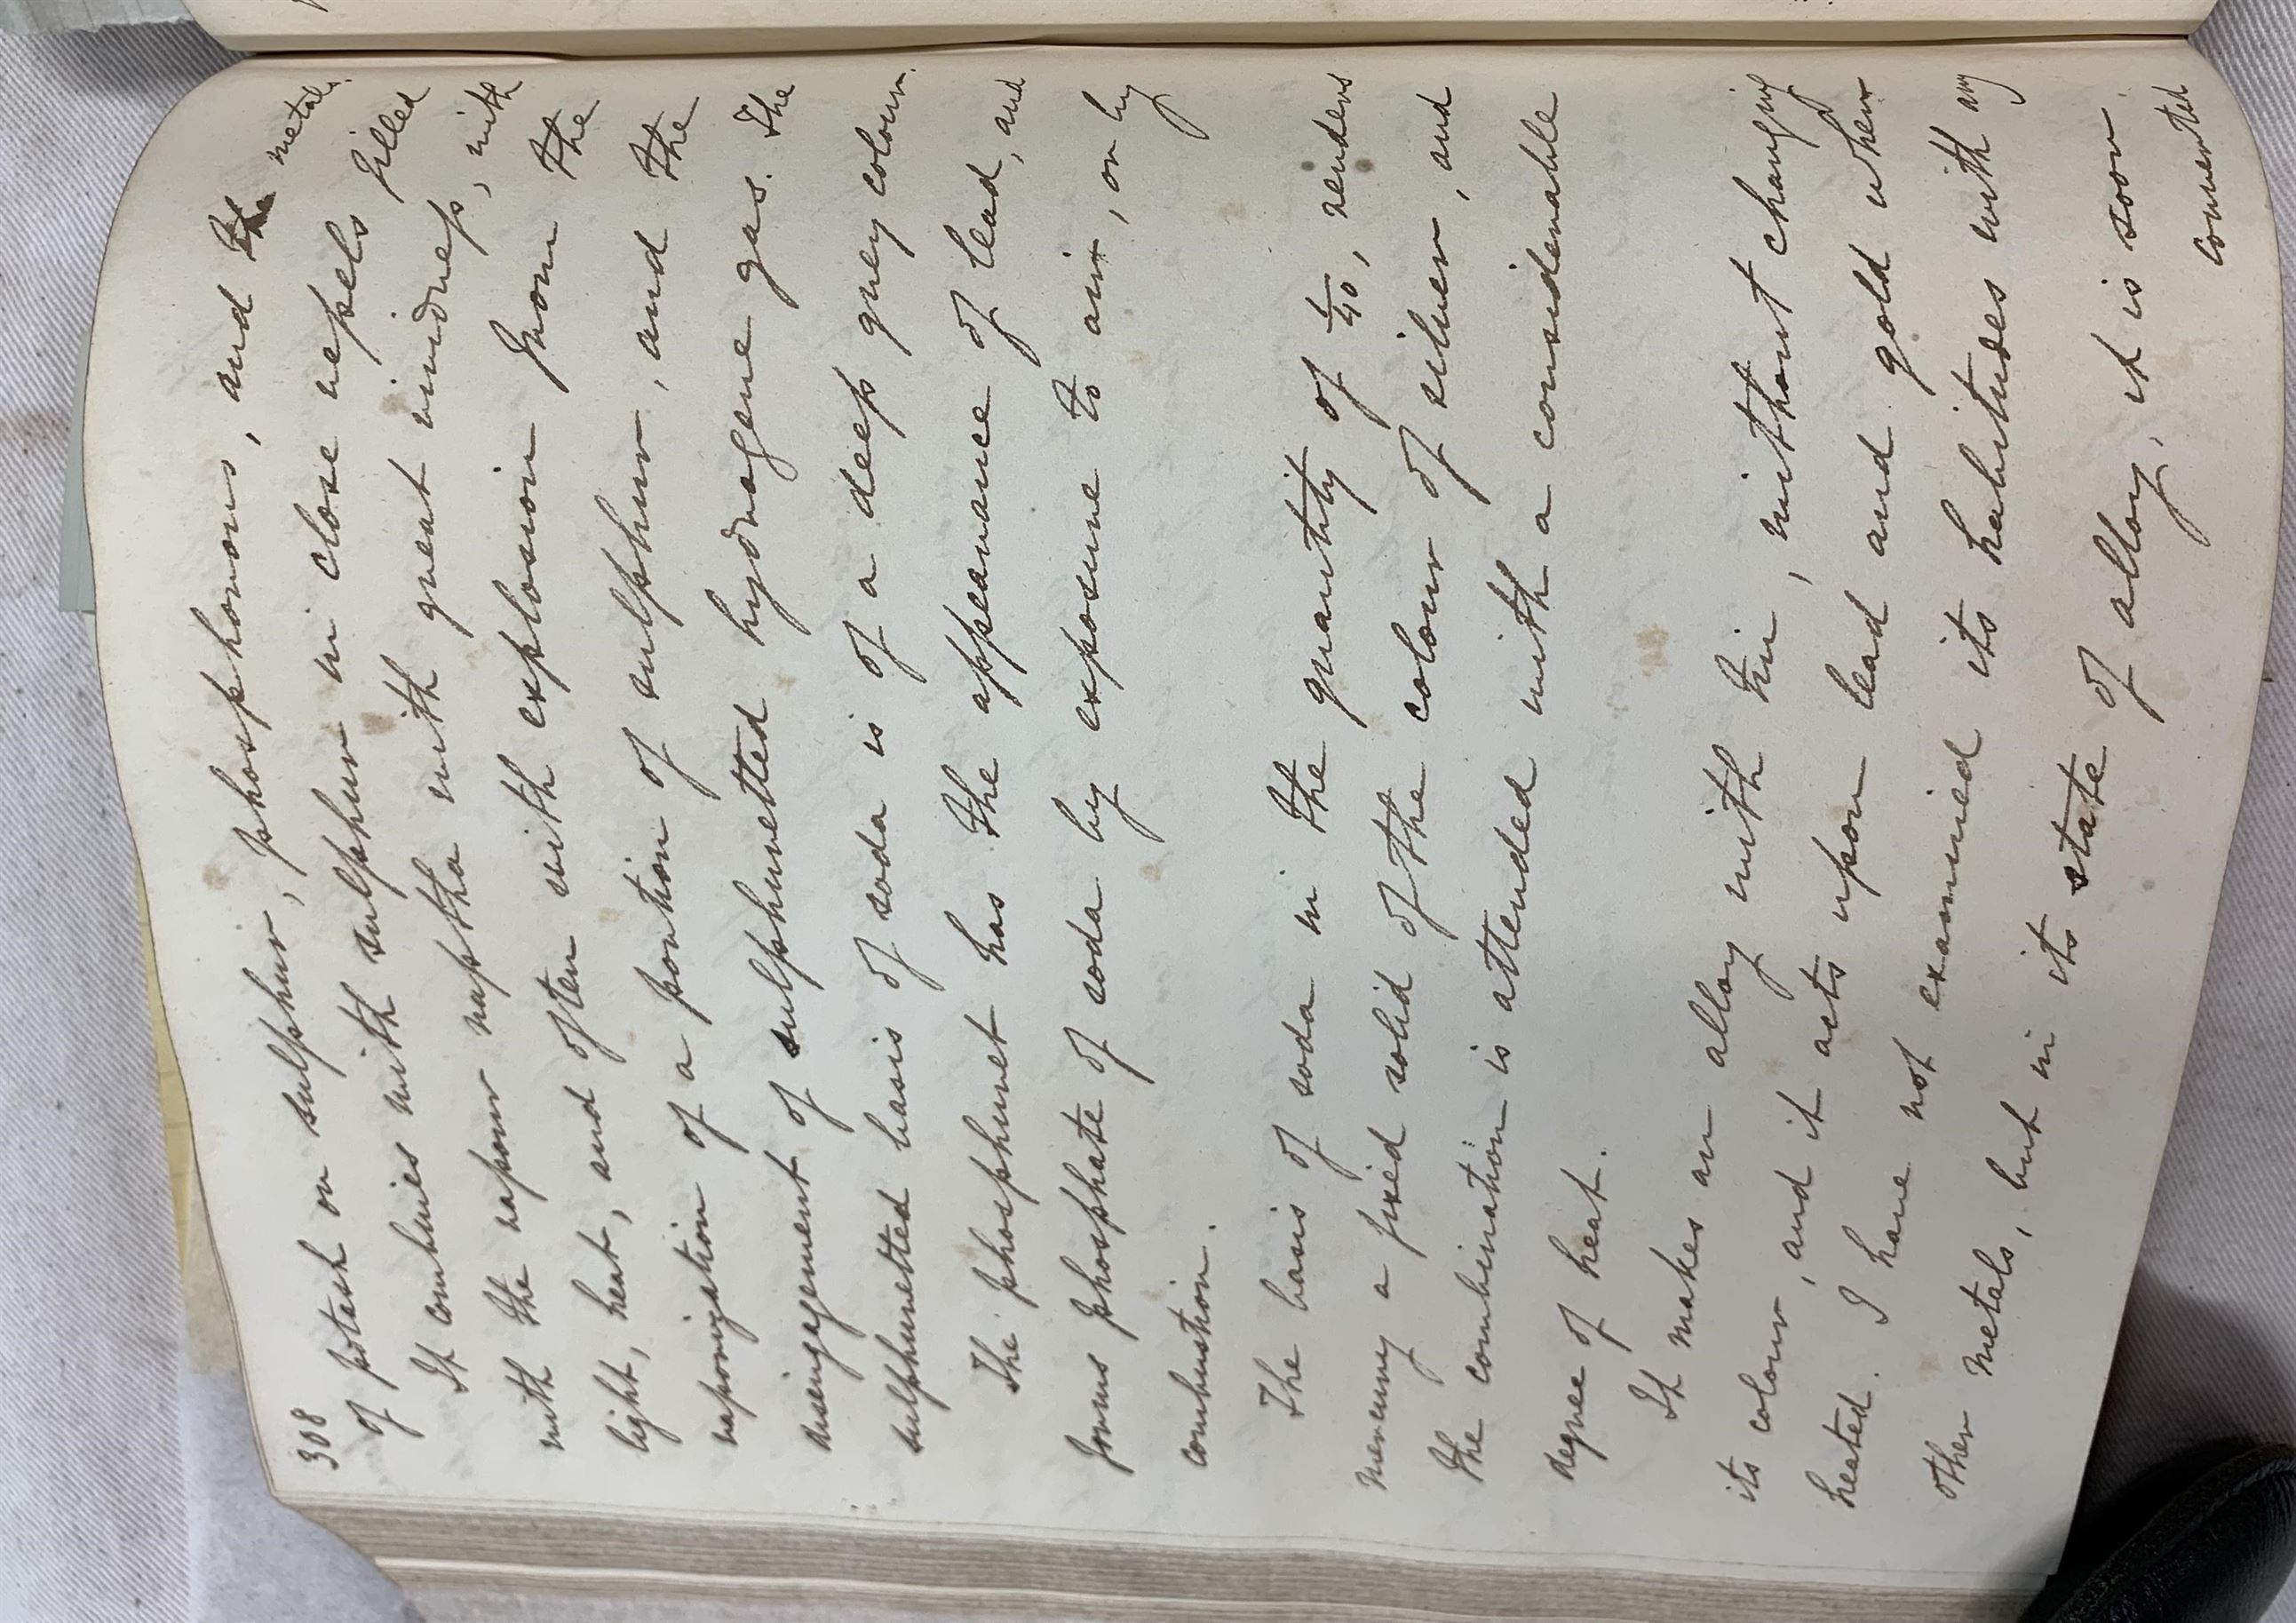 308
of potash on sulphur, phosphorus, and the metals.
It combines with sulphur in close vessels filled
with the vapour naptha with great vividness, with
light, heat, and often with explosion from the
vaporization of a portion of sulphur, and the
disengagement of sulphuretted hydrogene gas. The
sulphuretted basis of soda is of a deep grey colour.
The phosphuret has the appearance of lead, and
forms phosphate of soda by exposure to air, or by
combustion.
The basis of soda in the quantity of 1/40, renders
mercury a fixed solid of the colour of silver, and
the combination is attended with a considerable
degree of heat.
It makes an alloy with tin, without changing
its colour, and it acts upon lead and gold when
heated. I have not examined its habitudes with any
other metals, but in its state of alloy, it is soon
converted